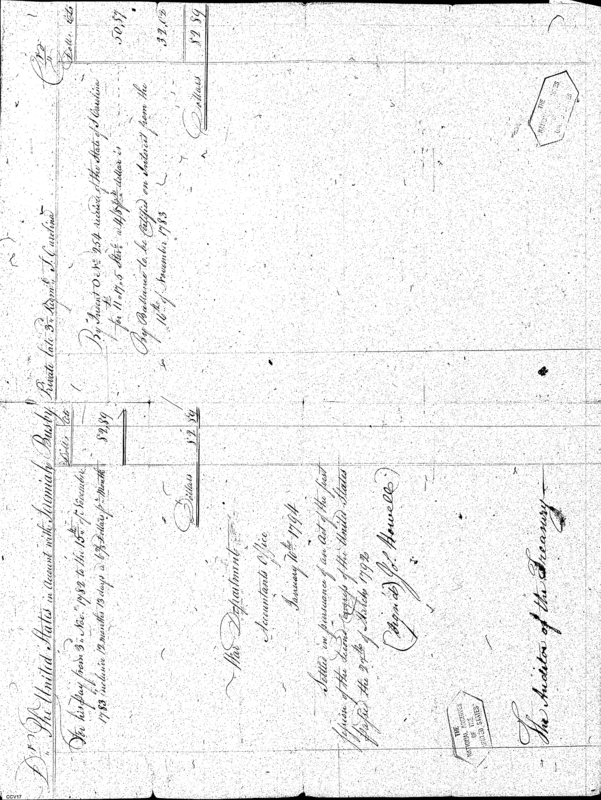 Dr. The United States in Account with Jeremiah Busby Private late 3d. Regmt. S. Carolina Cr.
Dolls. Cts
Dolls. Cts
To his pay from 3d. Novr. 1782 to the 15th of November
1783 inclusive 12 months 13 days a 6⅔ Dollars pr. Month
82,89
Dollars 82.89
By Indent O No. 254 recived of the State of S Carolina
for 11..17..5 Sterg. a 4/8 pr dollar is
50,57
By Ballance to be Certified on Interest from the
16th of November 1783
32,32
Dollars 82.89
War Department
Accountants Office
January 1794
Settled in pursuance of an Act of the first
Session of the Second Congress of the United States
passed the 27th of March 1792
(Signed) Jo. Howell
The Auditor of the Treasury
THE
NATIONAL ARCHIVES
OF THE
UNITED STATES
THE
NATIONAL ARCHIVES
OF THE
UNITED STATES
CCV17